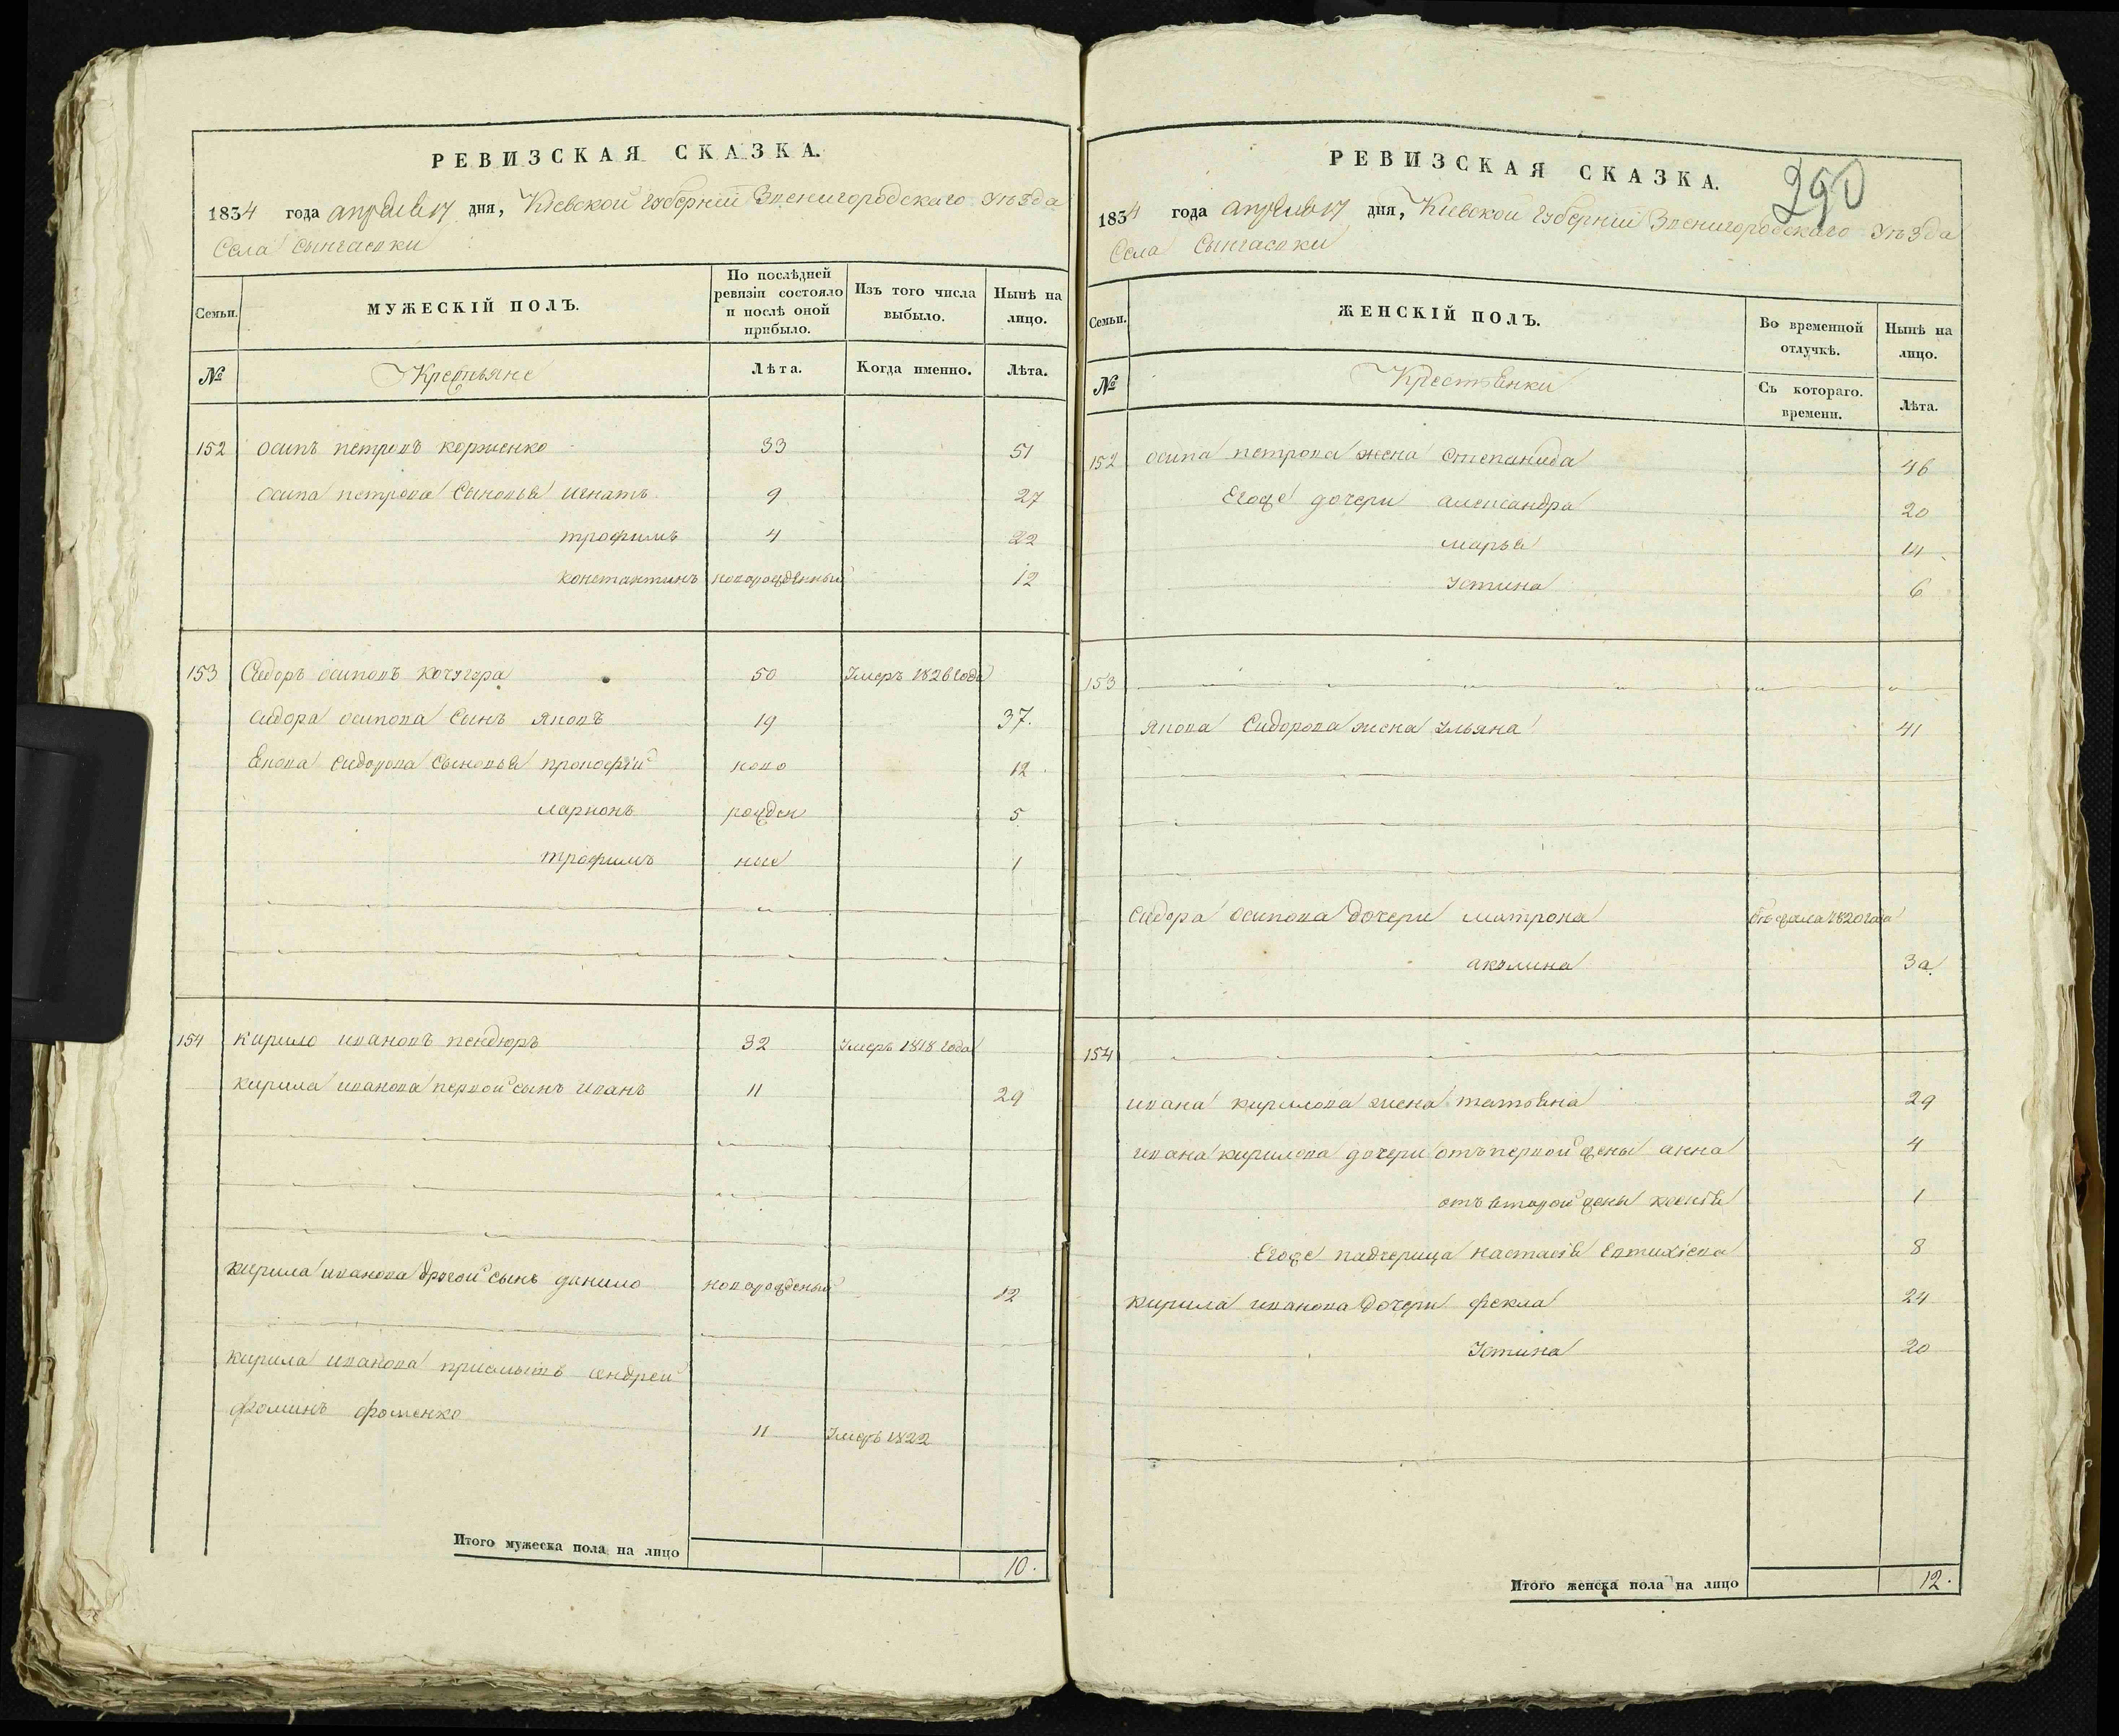 РЕВИЗСКАЯ СКАЗКА.
1834 года апреля 17 дня, Кіевской Губерніи Звенигородскаго Уѣзда
Села Сынгаевки
Семьи.
МУЖЕСКІЙ ПОЛЪ.
По послѣдней ревизіи состояло и послѣ оной прибыло.
Изъ того числа выбыло.
Нынѣ на лицо.
№
Крестьяне
Лѣта.
Когда именно.
Лѣта.
152 осипъ петровъ корженко 33 51
осипа петрова сыновья игнатъ 9 27
трофимъ 4 22
константинъ новорожденный 12
153 Сидоръ осиповъ кочугура 50 Умеръ 1826 года
сидора осипова сынъ яковъ 19 37.
Якова сидорова сыновья прокофій ново 12
ларионъ рожден 5
трофимъ ные 1
154 кирило ивановъ пендюръ 32 Умеръ 1818 года
кирила иванова первой сынъ иванъ 11 29
кирила иванова другой сынъ данило новорожденый 12
кирила иванова приемышъ андрей
фоминъ фоменко 11 Умеръ 1822
Итого мужеска пола на лицо 10.
290
РЕВИЗСКАЯ СКАЗКА.
1834 года апреля 17 дня, Кіевской Губерніи Звенигородскаго Уѣзда
Села Сынгаевки
Семьи.
ЖЕНСКІЙ ПОЛЪ.
Во временной отлучкѣ.
Нынѣ на лицо.
№
Крестьянки
Съ котораго. времени.
Лѣта.
152 осипа петрова жена Степанида 46
Егоже дочери александра 20
марья 14
Устина 6
153
якова Сидорова жена Ульяна 41
сидора осипова дочери матрона 1820 года
акулина 30
154
ивана кирилова жена татьяна 29
ивана кирилова дочери отъ первой жены анна 4
отъ второй жены ксенія 1
Егоже падчерица настасія Евтихіева 8
кирила иванова дочери фекла 24
Устина 20
Итого женска пола на лицо 12.